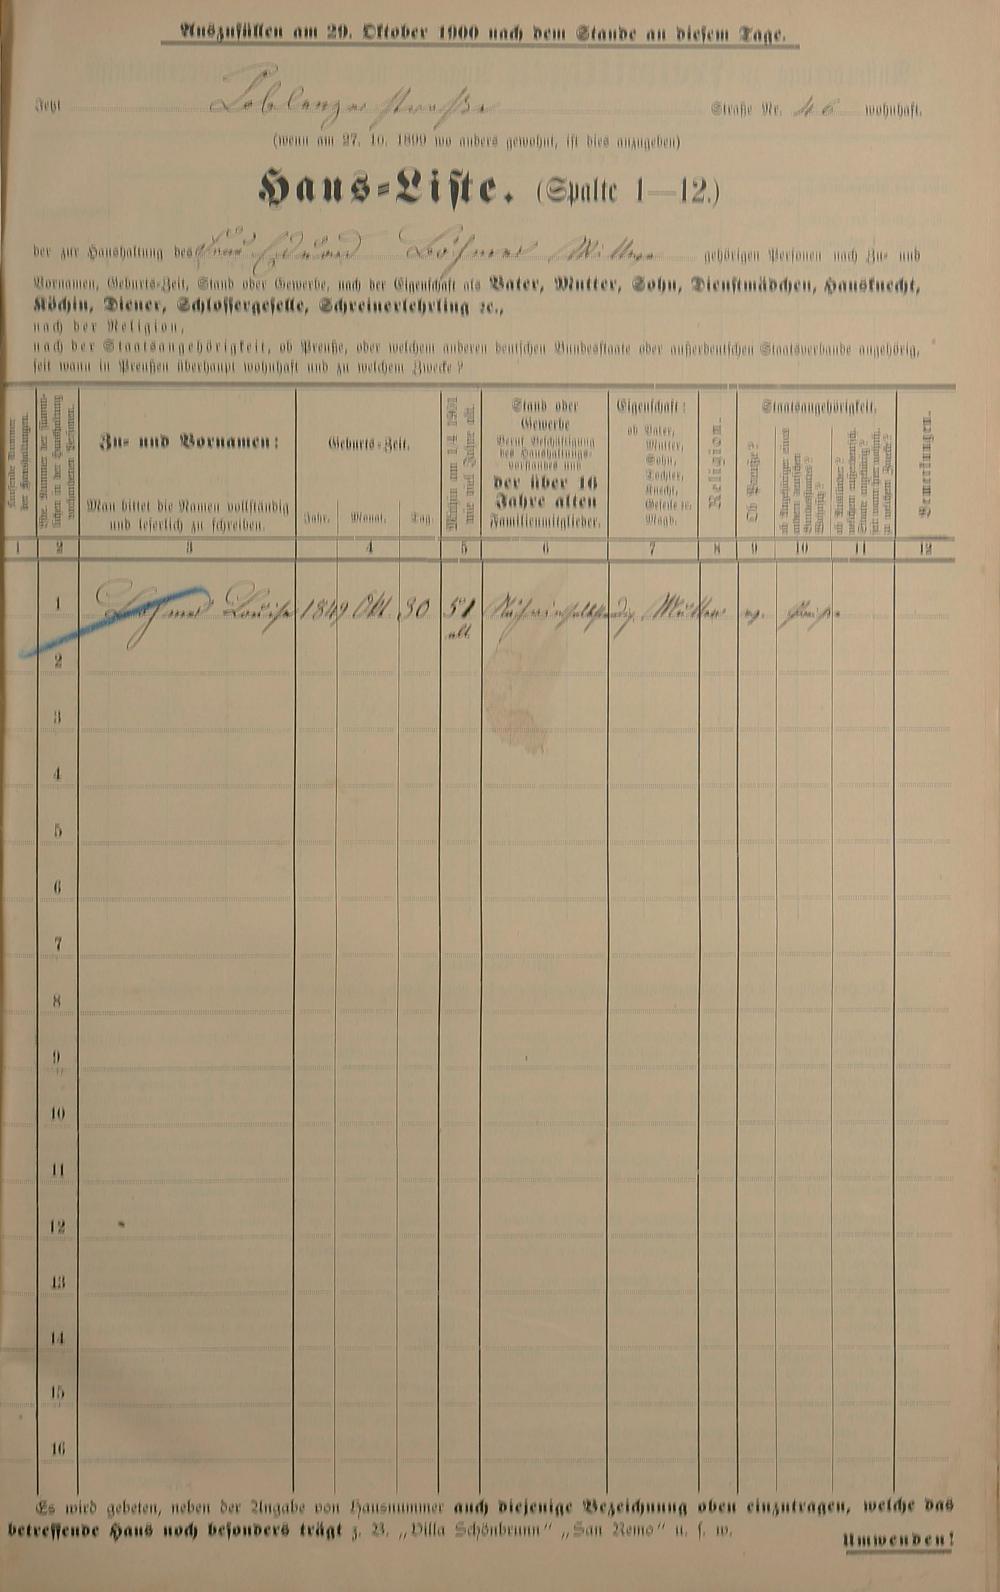 Auszufüllen am 29. Oktober 1900 nach dem Stande an diesem Tage.
Jetzt Coblenzerstraße Straße Nr. 46 wohnhaft.
(wenn am 27. 10. 1899 wo anders gewohnt, ist dies anzugeben)
Haus-Liste. (Spalte 1—12.)
der zur Haushaltung des Frau Eduard Böhmer Wittwe gehörigen Personen nach Zu- und
Vornamen, Geburts-Zeit, Stand oder Gewerbe, nach der Eigenschaft als Vater, Mutter, Sohn, Dienstmädchen, Hausknecht,
Köchin, Diener, Schlossergeselle, Schreinerlehrling 2c.,
nach der Religion,
nach der Staatsangehörigkeit, ob Preuße, oder welchem anderen deutschen Bundesstaate oder außerdeutschen Staatsverbande angehörig,
seit wann in Preußen überhaupt wohnhaft und zu welchem Zwecke?
Laufende Nummer
der Haushaltungen.
Lfde. Nummer der sämmt-
lichen in der Haushaltung
vorhandenen Personen.
Zu- und Vornamen:
Man bittet die Namen vollständig
und leserlich zu schreiben.
Geburts-Zeit.
Jahr. Monat. Tag.
Mithin am 1./4. 1901
wie viel Jahre alt.
Stand oder
Gewerbe
Beruf, Beschäftigung
des Haushaltungs-
vorstandes und
der über 16
Jahre alten
Familienmitglieder.
Eigenschaft:
ob Vater,
Mutter,
Sohn,
Tochter,
Knecht,
Geselle 2c.
Magd.
Religion.
Staatsangehörigkeit.
Ob Preuße?
ob Angehöriger eines
andern deutschen
Bundesstaates?
Welches?
ob Ausländer?
welchem außerdeutsch.
Staate angehörig?
seit wann hier wohnh.
zu welchem Zwecke?
Bemerkungen.
1 2 3 4 5 6 7 8 9 10 11 12
1 Böhmer Louise 1849 Okt. 30 51 Mutter ev. Preuße
alt.
2
3
4
5
6
7
8
9
10
11
12
13
14
15
16
Es wird gebeten, neben der Angabe von Hausnummer auch diejenige Bezeichnung oben einzutragen, welche das
betreffende Haus noch besonders trägt z. B. „Villa Schönbrunn" „San Remo" u. s. w.
Umwenden!